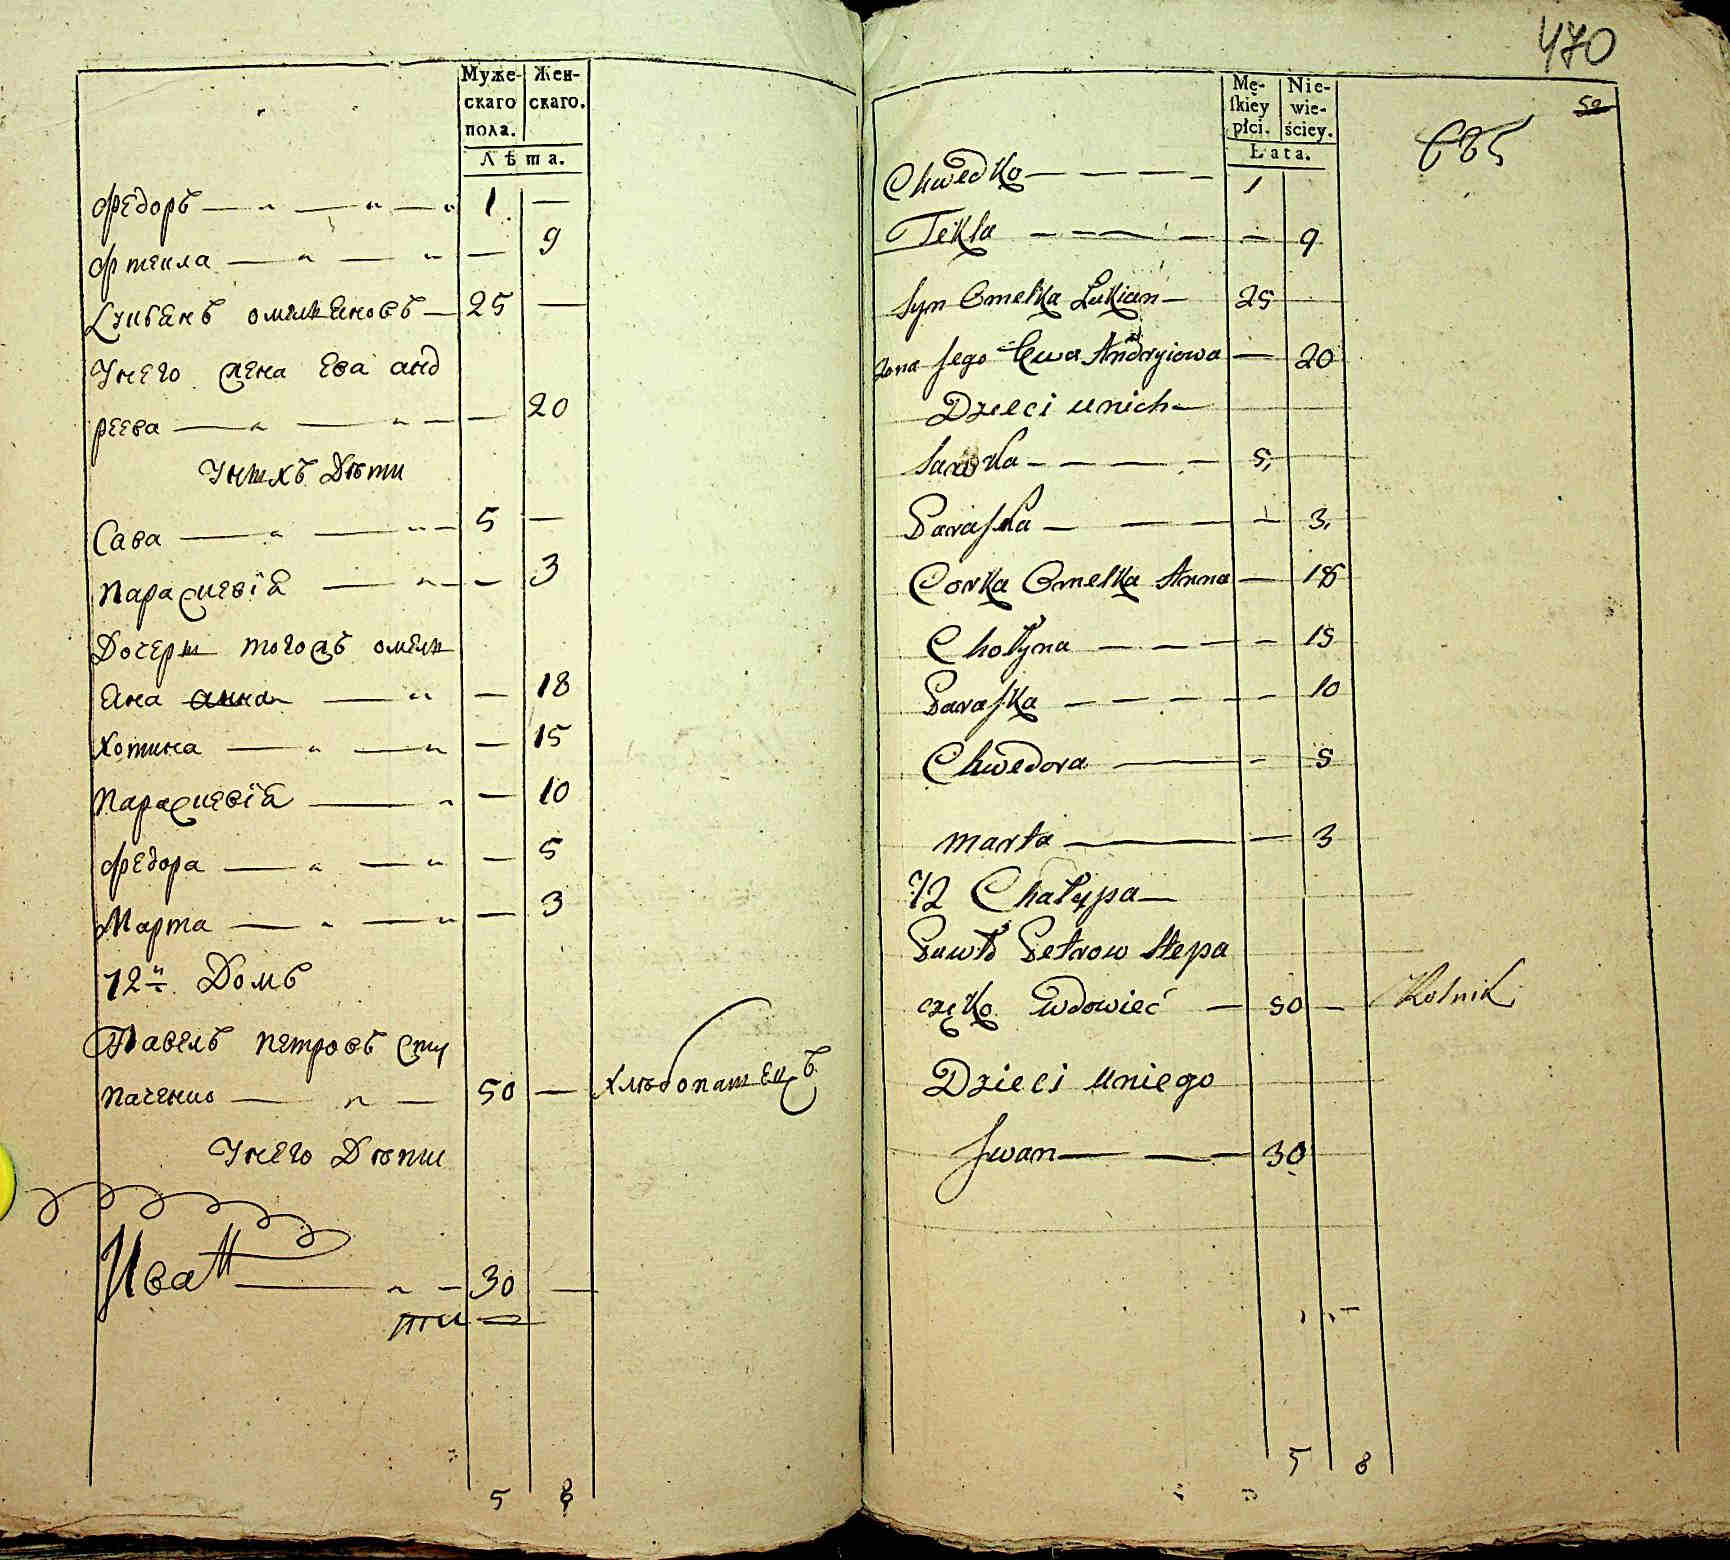 Муже-
скаго
пола.
Жен-
скаго.
Лѣта.
Федоръ — „ — „ — „ 1 —
Фтекла — „ — „ — 9
Лукѣянъ омелѣяновъ — 25 —
Унего жена Ева анд
реева — „ — „ — — 20
Унихъ Дѣти
Сава — „ — „ — 5 —
Параскевіѣ — „ — — 3
Дочери тогожъ омелѣ
яна анна — „ — 18
Хотина — „ — „ — 15
Параскевіѣ — „ — 10
Федора — „ — „ — 5
Марта — „ — „ — 3
72й Домъ
Павелъ петровъ Сту
паченко — „ — 50 — Хлѣбопашецъ
Унего Дѣти
Иван — „ — 30 —
5 8
470
52
Mę-
skiey
płci.
Nie-
wie-
ściey.
Lata.
Chwedko — — — — 1
Tekla — — — — — 9
Syn Omelka Łukian — 25
Zona Jego Ewa Andryiowa — 20
Dzieci unich —
Sawka — — — — 5
Paraska — — — — 3
Corka Omelka Anna — 18
Chotyna — — — — 15
Paraska — — — — — 10
Chwedora — — 5
Marta — — 3
72 Chałupa —
Pawło Petrow Stepa
częko Wdowieć — 50 — Rolnik
Dzieci uniego
Jwan — — — 30
5 8